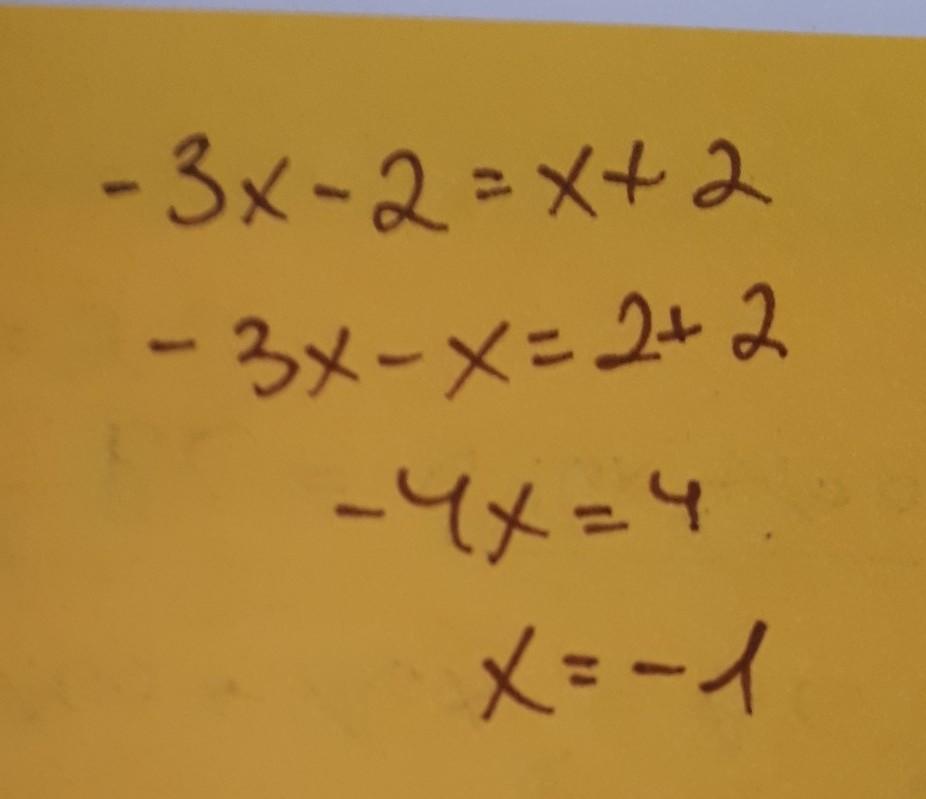 -3x-2=x+2
-3x-x=2+2
-4x=4
x=-1